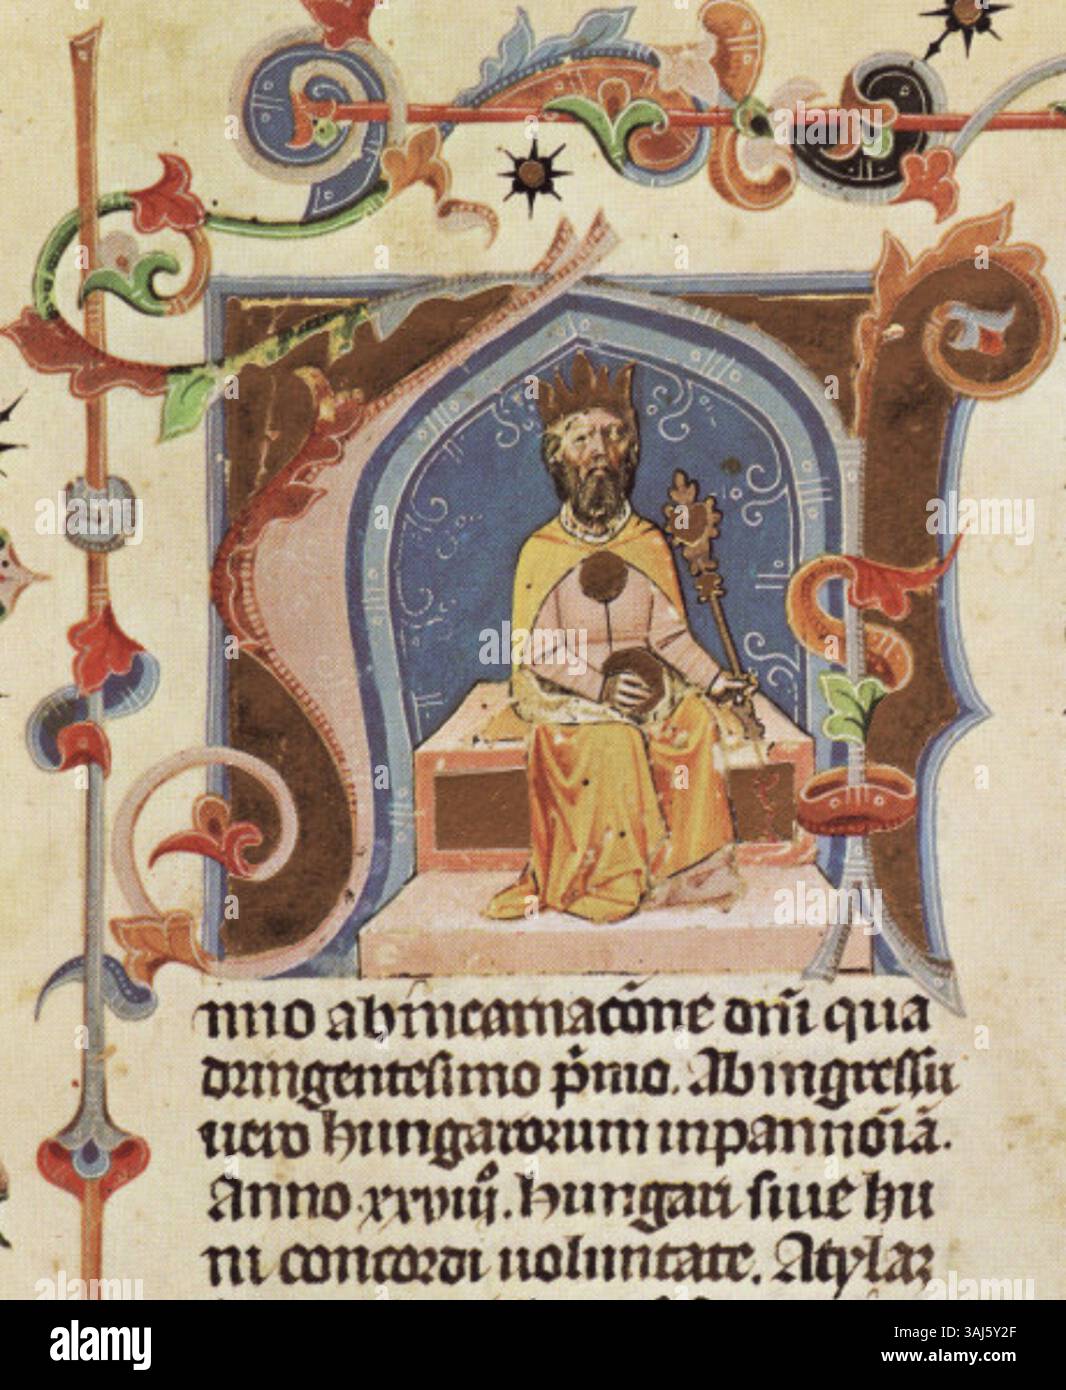 nno ab incarnac̄one dn̄i qua
dringentesimo p̄mo. Ab ingressu
uero hungarorum in pannōiā.
Anno xxviiiº. hungari siue hu
ni concordi uoluntate. Atylaz
alamy
Image ID: 3AJ5Y2F
www.alamy.com